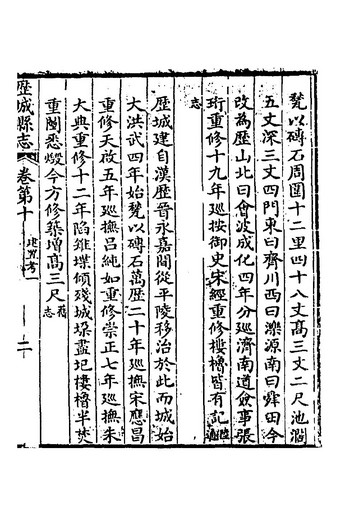 甃以磚石周圍十二里四十八丈髙三丈二尺池濶
五丈深三丈四門東曰齊川西曰濼源南曰舜田今
改為歷山北曰會波成化四年分巡濟南道僉事張
珩重修十九年巡按御史宋經重修樓櫓皆有記
志
歷城建自漢歷晉永嘉間從平陵移治於此而城始
大洪武四年始甃以磚石萬歷二十年巡撫宋應昌
重修天啟五年巡撫呂純如重修崇正七年巡撫朱
大典重修十二年陷雉堞傾殘城垜盡圮樓櫓半焚
重闉悉燬今方修築增髙三尺舊志
歷城縣志 卷第十 建置考一 二